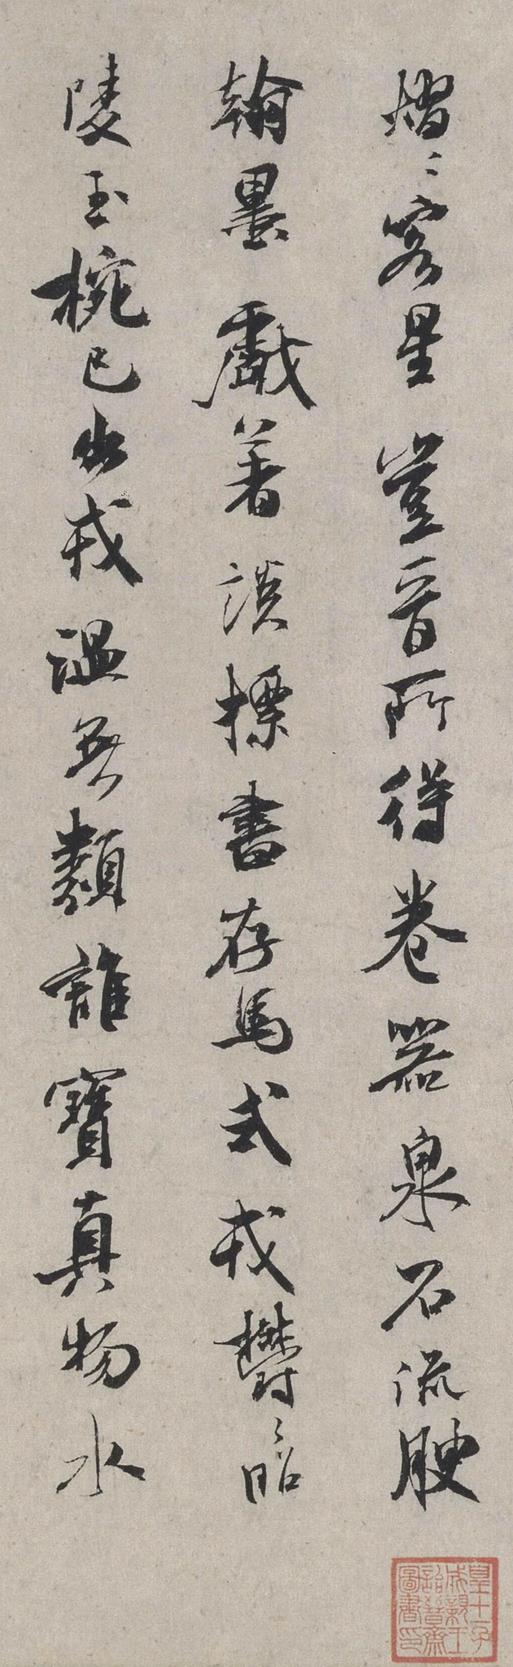 熠〻客星豈晉所得卷器泉石流腴
翰墨戲著談標書存馬式戎鬱〻昭
陵玉椀已出戎溫無類誰寶真物水
皇十一子成親王詒晉齋圖書印